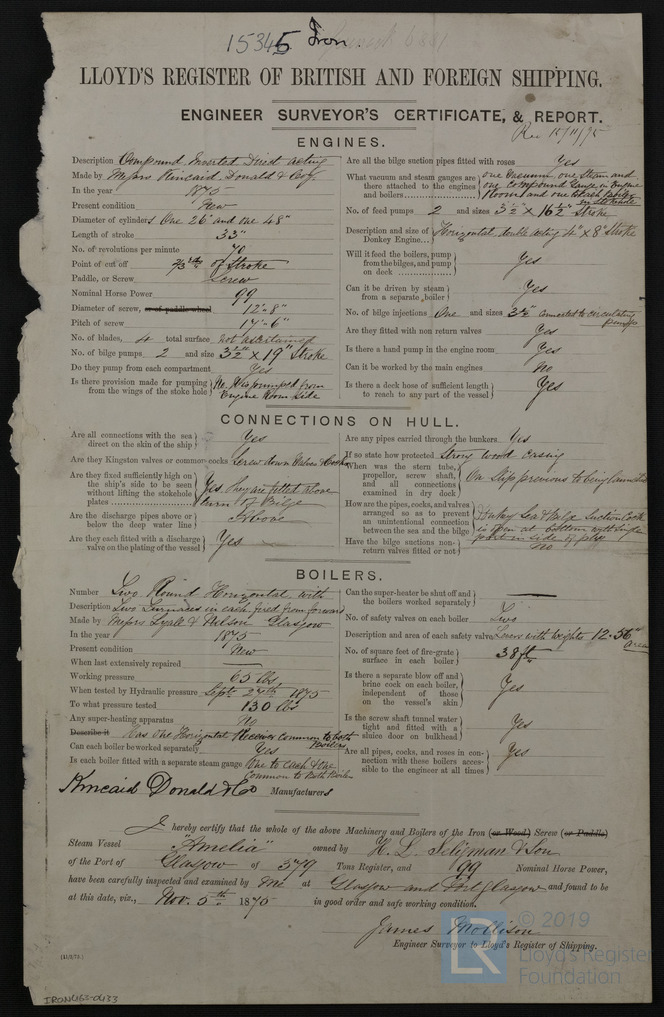 15345 Iron
LLOYD'S REGISTER OF BRITISH AND FOREIGN SHIPPING.
ENGINEER SURVEYOR'S CERTIFICATE, & REPORT.
Rec 15/11/75
ENGINES.
Description Compound Inverted Direct acting
Made by Messrs Kincaid Donald & Coy.
In the year 1875
Present condition New
Diameter of cylinders One 26" and one 48"
Length of stroke 33"
No. of revolutions per minute 70
Point of cut off 2/3rds of Stroke
Paddle, or Screw Screw
Nominal Horse Power 99
Diameter of screw, or of paddle wheel 12'-8"
Pitch of screw 17'-6"
No. of blades, 4 total surface, not ascertained
No. of bilge pumps 2 and size 3½" × 19" Stroke
Do they pump from each compartment Yes
Is there provision made for pumping from the wings of the stoke hole No. Is pumped from
Engine Room Side
Are all the bilge suction pipes fitted with roses Yes
What vacuum and steam gauges are there attached to the engines and boilers one Vacuum, one Steam and
one Compound Gauge in Engine
Room and one to each boiler
in Stokehole
No. of feed pumps 2 and sizes 3½" × 16½" Stroke
Description and size of Donkey Engine... Horizontal, double acting 4" × 8" Stroke
Will it feed the boilers, pump from the bilges, and pump on deck Yes
Can it be driven by steam from a separate boiler Yes
No. of bilge injections One and sizes 3½" connected to circulating
pump
Are they fitted with non return valves Yes
Is there a hand pump in the engine room Yes
Can it be worked by the main engines No
Is there a deck hose of sufficient length to reach to any part of the vessel Yes
CONNECTIONS ON HULL.
Are all connections with the sea direct on the skin of the ship Yes
Are they Kingston valves or common cocks Screw down Valves & Cocks
Are they fixed sufficiently high on the ship's side to be seen without lifting the stokehole plates Yes. they are fitted above
turn of Bilge
Are the discharge pipes above or below the deep water line Above
Are they each fitted with a discharge valve on the plating of the vessel Yes
Are any pipes carried through the bunkers Yes
If so state how protected Strong wood casing
When was the stern tube, propeller, screw shaft, and all connections examined in dry dock On Slip previous to being launched
How are the pipes, cocks, and valves arranged so as to prevent an unintentional connection between the sea and the bilge Donkey Sea & Bilge Suction Cock
is open at bottom with single
port in side of plug
Have the bilge suctions non-return valves fitted or not No
BOILERS.
Number Two Round Horizontal with
Description Two Furnaces in each fired from forward
Made by Messrs Lyall & Nelson Glasgow
In the year 1875
Present condition New
When last extensively repaired —
Working pressure 65 lbs
When tested by Hydraulic pressure Septr 27th 1875
To what pressure tested 130 lbs
Any super-heating apparatus No
Describe it Has one Horizontal Receiver common to both
Boilers
Can each boiler be worked separately Yes
Is each boiler fitted with a separate steam gauge One to each & One
Common to Both Boilers
Kincaid Donald & Co Manufacturers
Can the super-heater be shut off and the boilers worked separately —
No. of safety valves on each boiler Two
Description and area of each safety valve Levers with weights 12.56"
area
No. of square feet of fire-grate surface in each boiler 38 ft
Is there a separate blow off and brine cock on each boiler, independent of those on the vessel's skin Yes
Is the screw shaft tunnel water tight and fitted with a sluice door on bulkhead Yes
Are all pipes, cocks, and roses in connection with these boilers accessible to the engineer at all times Yes
I hereby certify that the whole of the above Machinery and Boilers of the Iron (or Wood) Screw (or Paddle)
Steam Vessel "Amelia" owned by H. L. Seligman & Son
of the Port of Glasgow of 379 Tons Register, and 99 Nominal Horse Power,
have been carefully inspected and examined by me at Glasgow and Port Glasgow and found to be
at this date, viz., Nov. 5th 1875 in good order and safe working condition.
James Mollison
Engineer Surveyor to Lloyd's Register of Shipping.
IRON462-0433
LR
© 2019
Lloyd's Register
Foundation